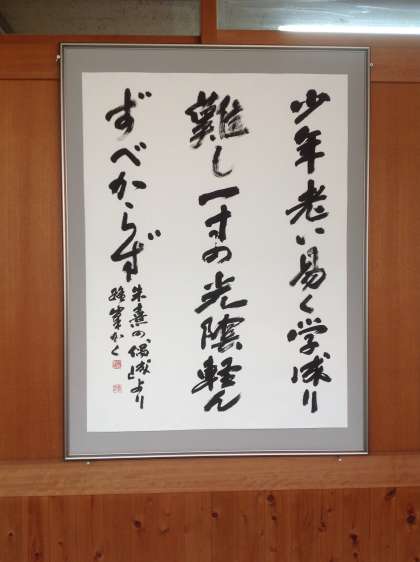 少年老い易く学成り
難し一寸の光陰軽ん
ずべからず
朱熹の偶成より
峯かく